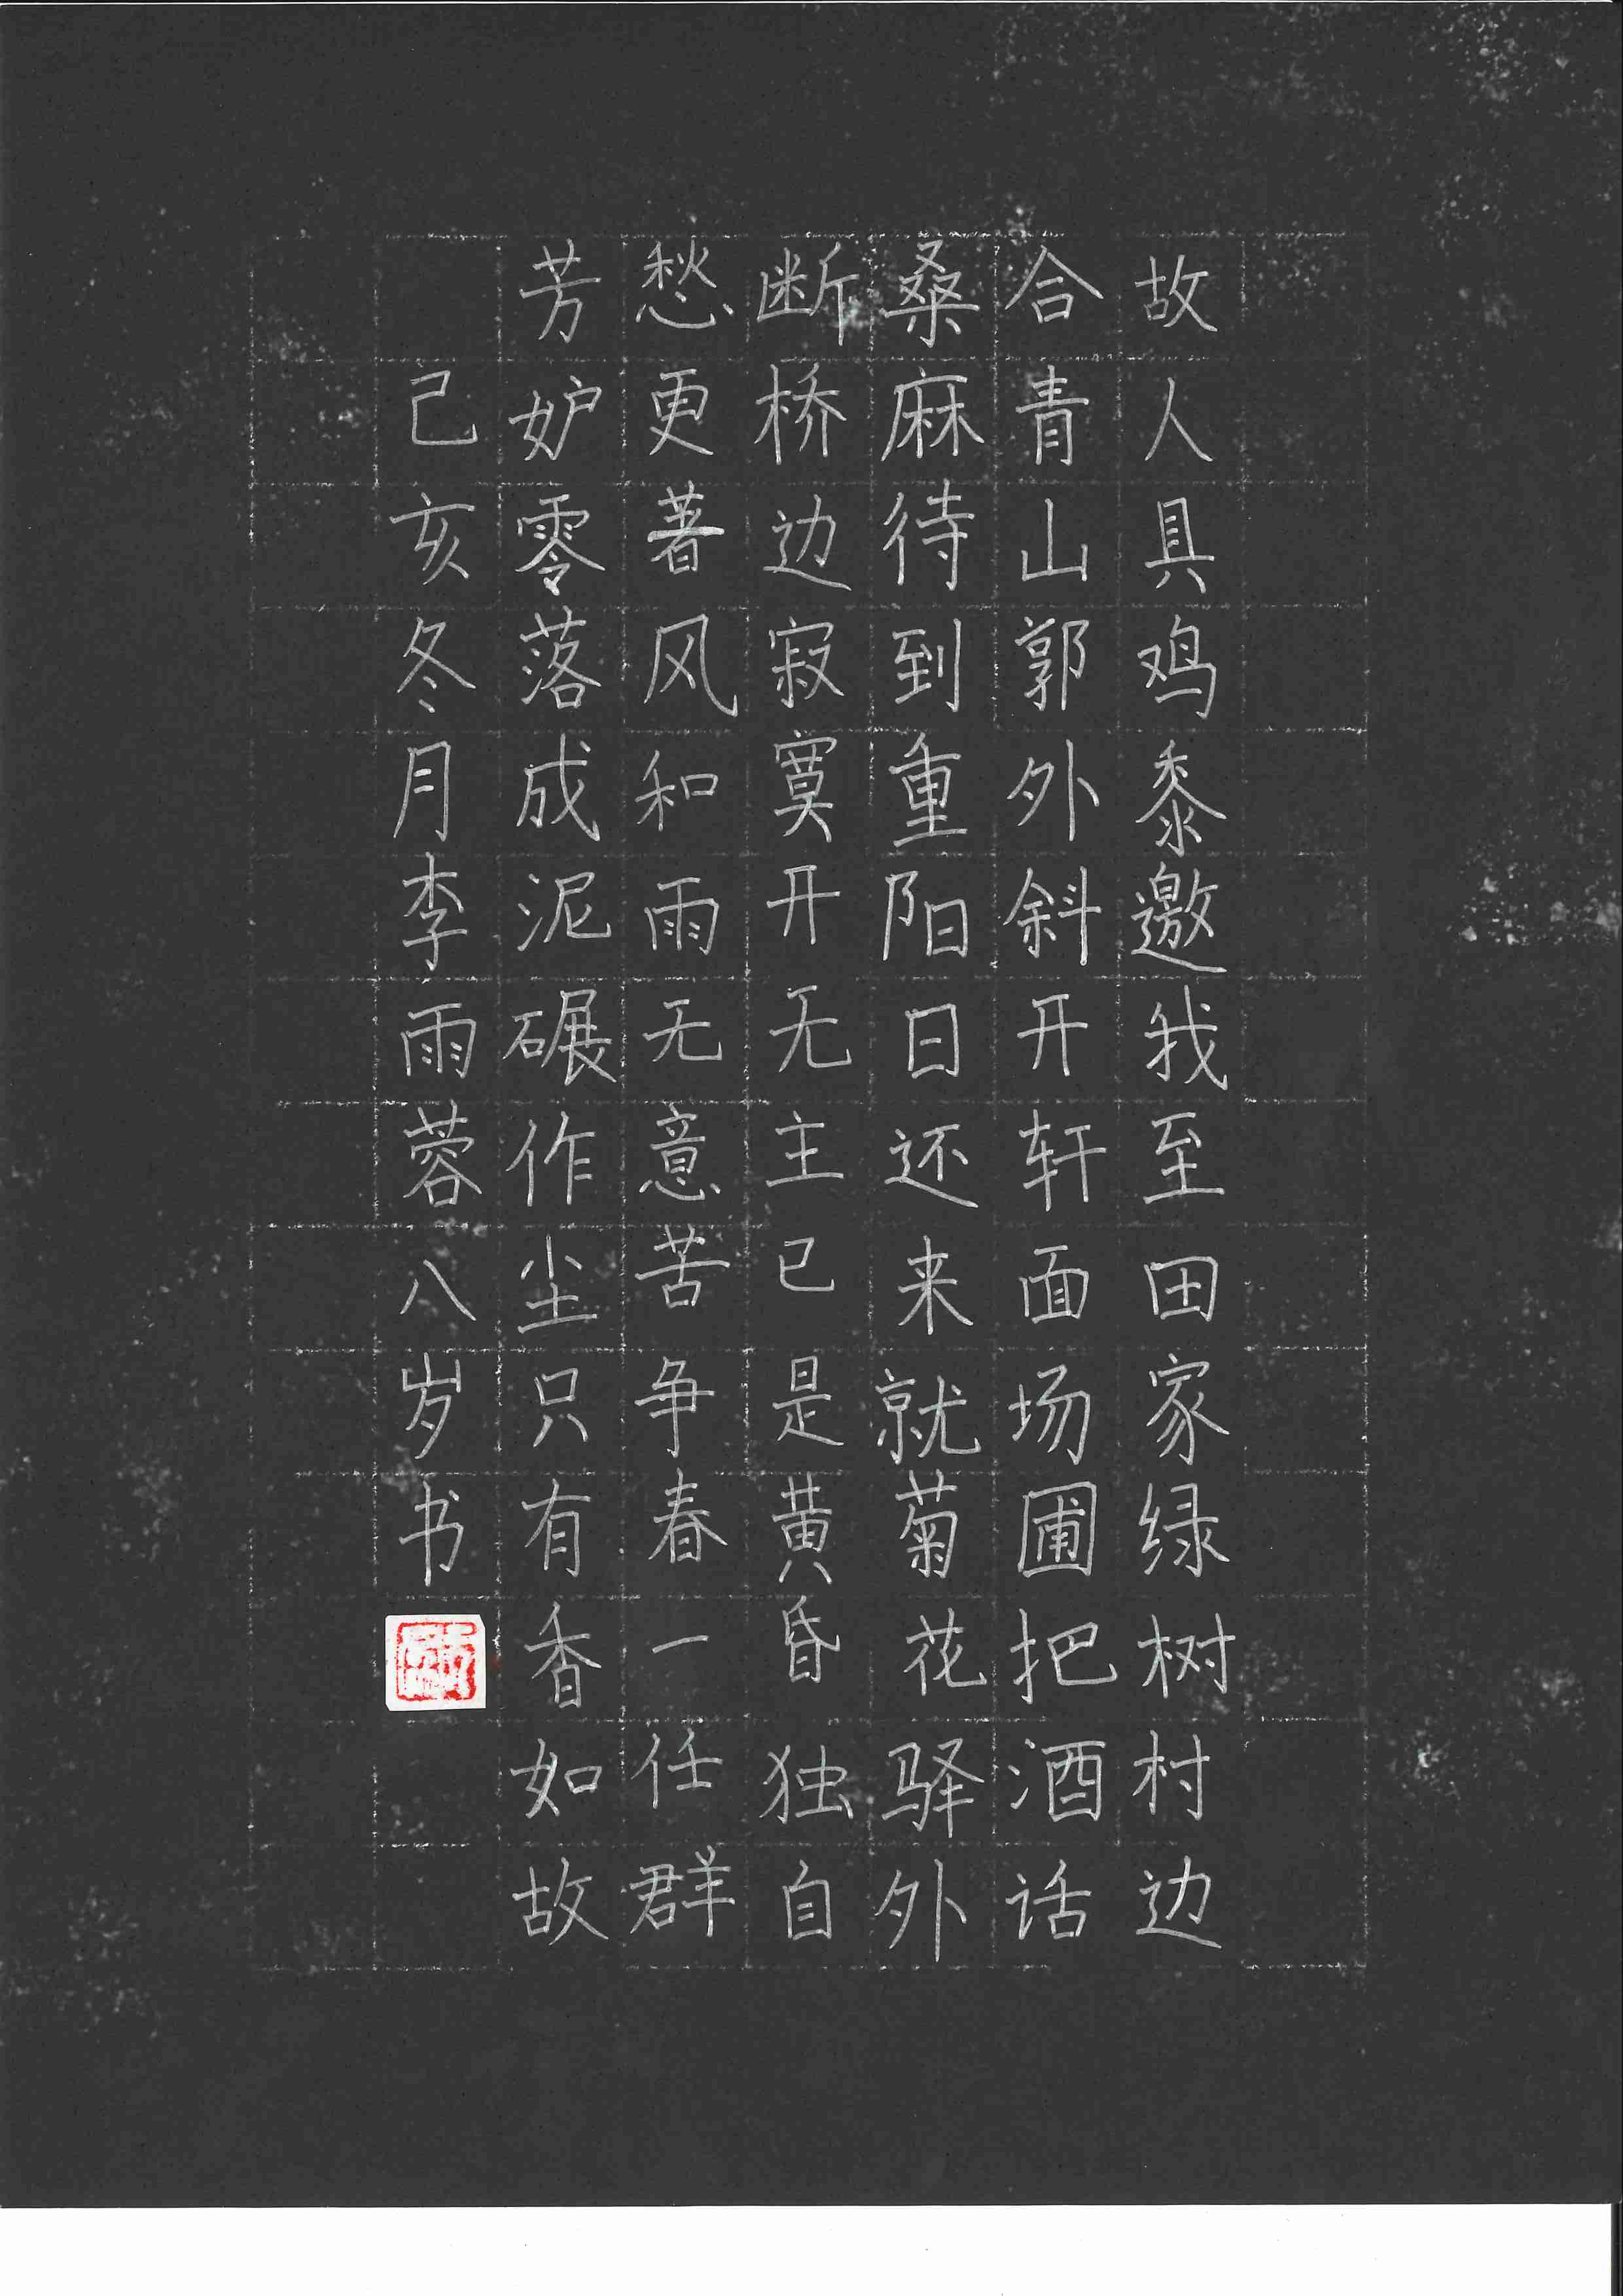 故人具鸡黍邀我至田家绿树村边
合青山郭外斜开轩面场圃把酒话
桑麻待到重阳日还来就菊花驿外
断桥边寂寞开无主已是黄昏独自
愁更著风和雨无意苦争春一任群
芳妒零落成泥碾作尘只有香如故
己亥冬月李雨蓉八岁书